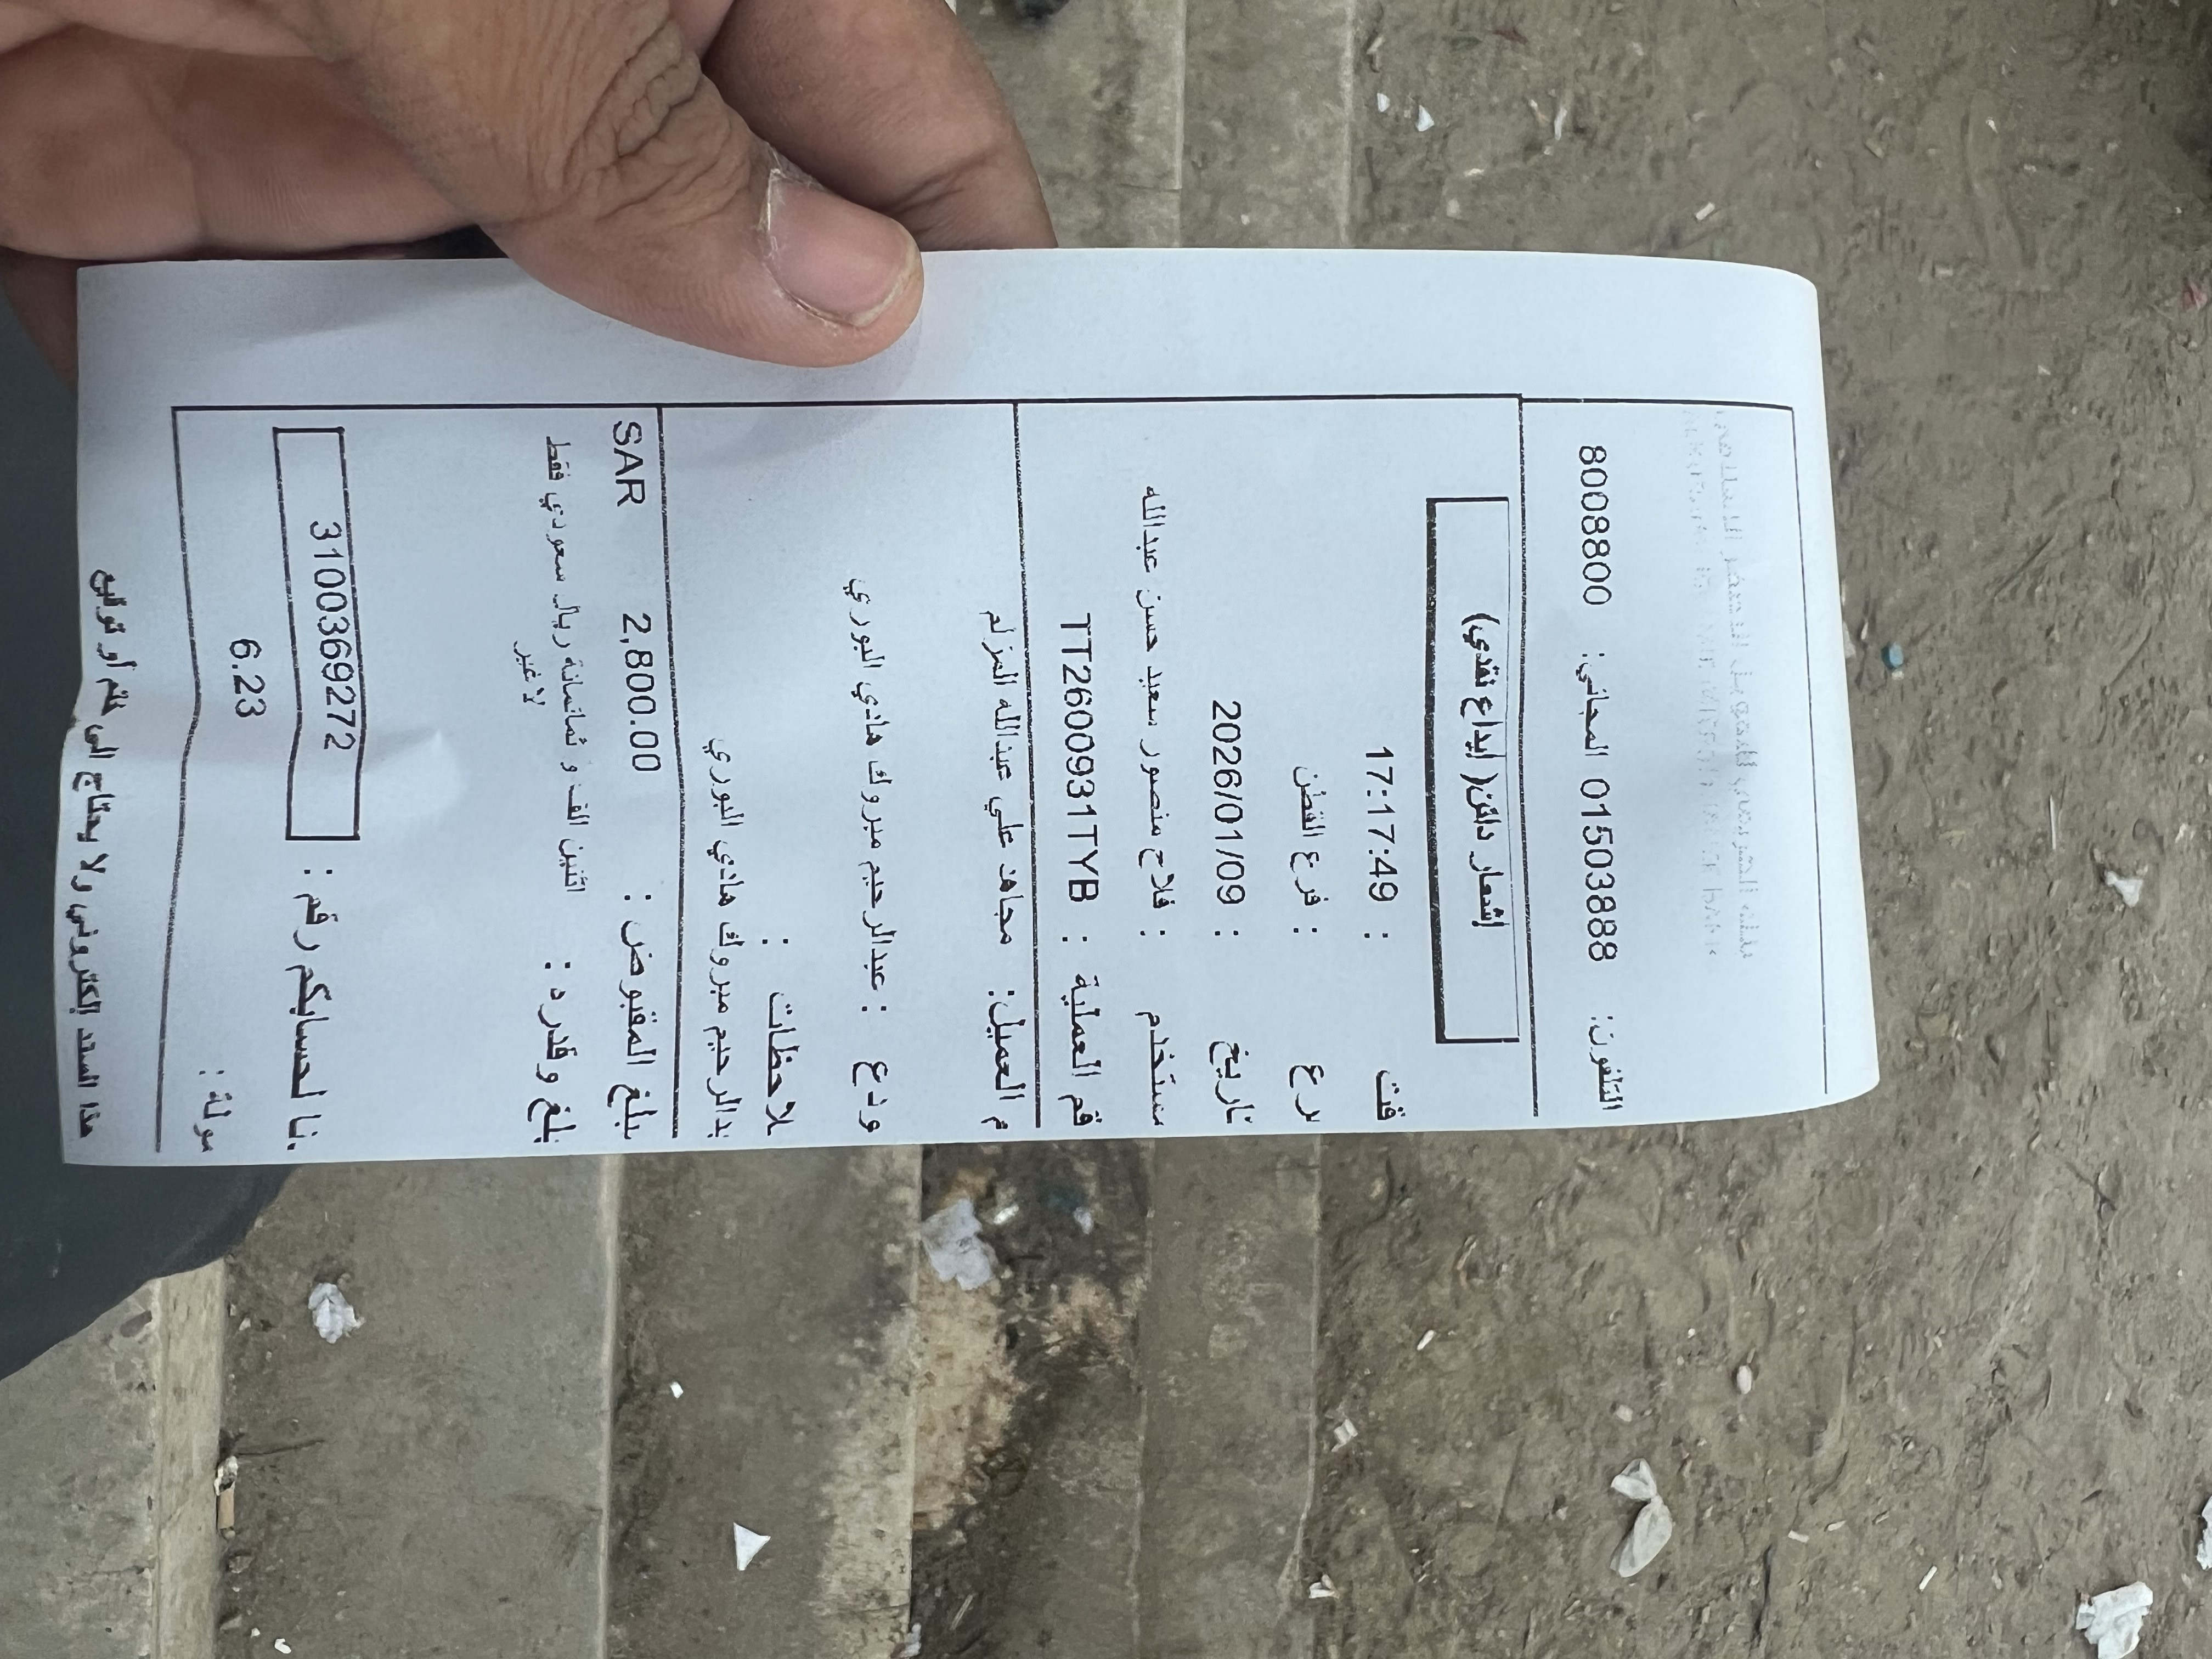 التلفون: 01503888 المجاني: 8008800
إشعار دائن( إيداع نقدي)
قت : 17:17:49
رع : فرع القطن
تاريخ : 2026/01/09
ستخدم : فلاح منصور سعيد حسن عبدالله
قم العملية : TT2600931TYB
م العميل: مجاهد علي عبدالله المزلم
ودع : عبدالرحيم مبروك هادي البوري
لاحظات :
بدالرحيم مبروك هادي البوري
بلغ المقبوض : 2,800.00 SAR
بلغ وقدره : اثنين الف و ثمانمائة ريال سعودي فقط
لاغير
نا لحسابكم رقم : 3100369272
مولة : 6.23
هذا السند إلكتروني ولا يحتاج الى ختم أو توقيع